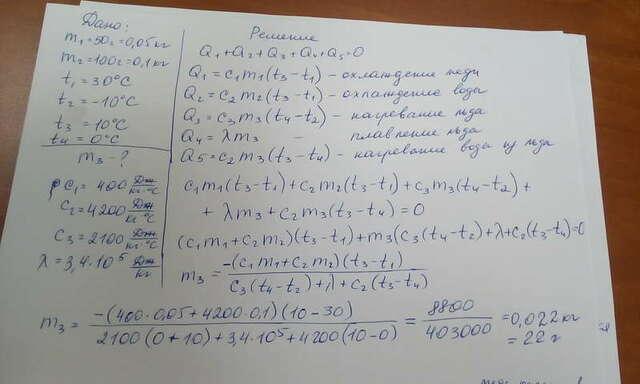 Дано:
m₁=50г=0,05кг
m₂=100г=0,1кг
t₁=30°C
t₂=-10°C
t₃=10°C
t₄=0°C
m₃-?
c₁=400 Дж/кг·°C
c₂=4200 Дж/кг·°C
c₃=2100 Дж/кг·°C
λ=3,4·10⁵ Дж/кг
Решение
Q₁+Q₂+Q₃+Q₄+Q₅=0
Q₁=c₁m₁(t₃-t₁)-охлаждение меди
Q₂=c₂m₂(t₃-t₁)-охлаждение вода
Q₃=c₃m₃(t₄-t₂)-нагревание льда
Q₄=λm₃ - плавление льда
Q₅=c₂m₃(t₃-t₄)-нагревание вода из льда
c₁m₁(t₃-t₁)+c₂m₂(t₃-t₁)+c₃m₃(t₄-t₂)+
+λm₃+c₂m₃(t₃-t₄)=0
(c₁m₁+c₂m₂)(t₃-t₁)+m₃(c₃(t₄-t₂)+λ+c₂(t₃-t₄)=0
m₃=-(c₁m₁+c₂m₂)(t₃-t₁)/c₃(t₄-t₂)+λ+c₂(t₃-t₄)
m₃=-(400·0,05+4200·0,1)(10-30)/2100(0+10)+3,4·10⁵+4200(10-0)=8800/403000=0,022кг
=22г